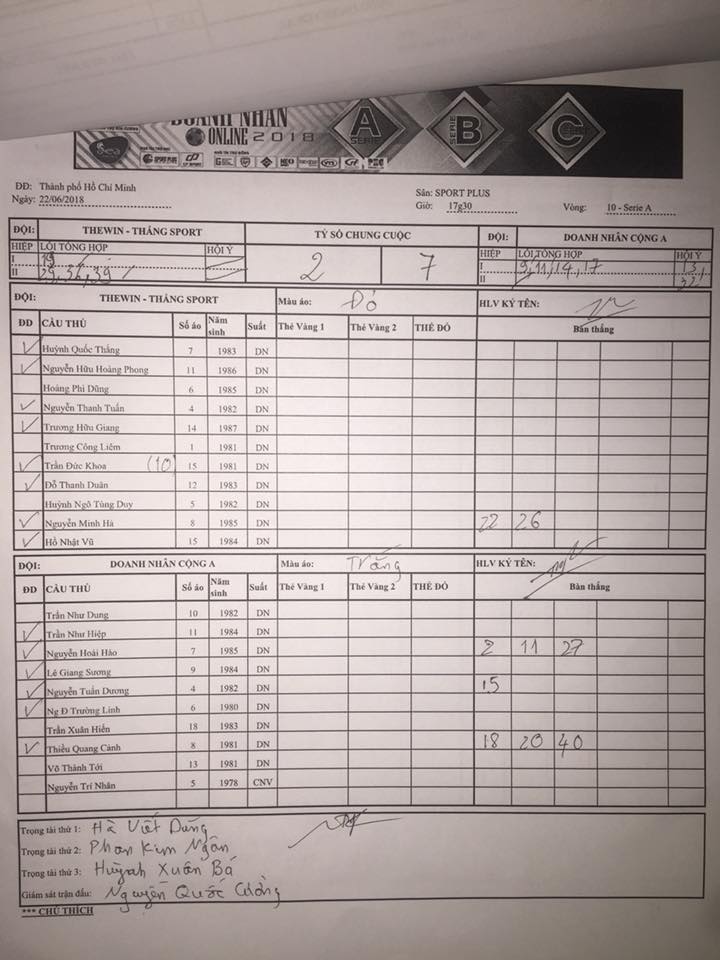 DOANH NHÂN
ONLINE 2018
A SERIE
SERIE B
C
SPORT PLUS
ĐĐ: Thành phố Hồ Chí Minh
Ngày: 22/06/2018
Sân: SPORT PLUS
Giờ: 17g30 Vòng: 10 - Serie A
ĐỘI: THEWIN - THẮNG SPORT TỶ SỐ CHUNG CUỘC ĐỘI: DOANH NHÂN CỘNG A
HIỆP LỖI TỔNG HỢP HỘI Ý 2 7 HIỆP LỖI TỔNG HỢP HỘI Ý
I 19 I 9, 11, 14, 17 13
II 29, 36, 39 II 32
ĐỘI: THEWIN - THẮNG SPORT Màu áo: Đỏ HLV KÝ TÊN:
ĐD CẦU THỦ Số áo Năm sinh Suất Thẻ Vàng 1 Thẻ Vàng 2 THẺ ĐỎ Bàn thắng
✓ Huỳnh Quốc Thắng 7 1983 DN
✓ Nguyễn Hữu Hoàng Phong 11 1986 DN
Hoàng Phi Dũng 6 1985 DN
✓ Nguyễn Thanh Tuấn 4 1982 DN
✓ Trương Hữu Giang 14 1987 DN
Trương Công Liêm 1 1981 DN
✓ Trần Đức Khoa (10) 15 1981 DN
✓ Đỗ Thanh Duân 12 1983 DN
Huỳnh Ngô Tùng Duy 5 1982 DN
✓ Nguyễn Minh Hà 8 1985 DN 22 26
✓ Hồ Nhật Vũ 15 1984 DN
ĐỘI: DOANH NHÂN CỘNG A Màu áo: Trắng HLV KÝ TÊN:
ĐD CẦU THỦ Số áo Năm sinh Suất Thẻ Vàng 1 Thẻ Vàng 2 THẺ ĐỎ Bàn thắng
Trần Như Dung 10 1982 DN
✓ Trần Như Hiệp 11 1984 DN
✓ Nguyễn Hoài Hảo 7 1985 DN 2 11 27
✓ Lê Giang Sương 9 1984 DN
✓ Nguyễn Tuấn Dương 4 1982 DN 15
✓ Ng Đ Trường Linh 6 1980 DN
Trần Xuân Hiển 18 1983 DN
✓ Thiều Quang Cảnh 8 1981 DN 18 20 40
Võ Thành Tới 13 1981 DN
Nguyễn Trí Nhân 5 1978 CNV
Trọng tài thứ 1: Hà Viết Dũng
Trọng tài thứ 2: Phan Kim Ngân
Trọng tài thứ 3: Huỳnh Xuân Bá
Giám sát trận đấu: Nguyễn Quốc Cường
*** CHÚ THÍCH